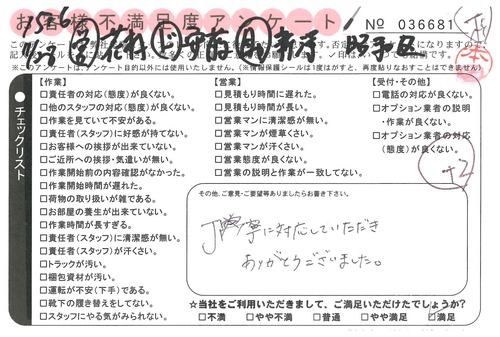 お客様不満足度アンケート
No 036681
※このアンケートは、アンケート目的以外には使用いたしません。(※情報保護シールは1度はがすと、再度貼りなおすことはできません)
チェックリスト
【作業】
□責任者の対応(態度)が良くない。
□他のスタッフの対応(態度)が良くない。
□作業を見ていて不安がある。
□責任者(スタッフ)に好感が持てない。
□お客様への挨拶が出来ていない。
□ご近所への挨拶・気遣いが無い。
□作業開始前の内容確認がなかった。
□作業開始時間が遅れた。
□荷物の取り扱いが雑である。
□お部屋の養生が出来ていない。
□作業時間が長すぎる。
□責任者(スタッフ)に清潔感が無い。
□責任者(スタッフ)が汗くさい。
□トラックが汚い。
□梱包資材が汚い。
□運転が不安(下手)である。
□靴下の履き替えをしてない。
□スタッフにやる気がみられない。
【営業】
□見積もり時間に遅れた。
□見積もり時間が長い。
□営業マンに清潔感が無い。
□営業マンが煙草くさい。
□営業マンが汗くさい。
□営業態度が良くない。
□営業の説明と作業が一致してない。
【受付・その他】
□電話の対応が良くない。
□オプション業者の説明
・作業が良くない。
□オプション業者の対応
(態度)が良くない。
+2
その他、ご意見・ご要望等ありましたらお書き下さい。
丁寧に対応していただき
ありがとうございました。
☆当社をご利用いただきまして、ご満足いただけたでしょうか?
□不満 □やや不満 □普通 □やや満足 □満足